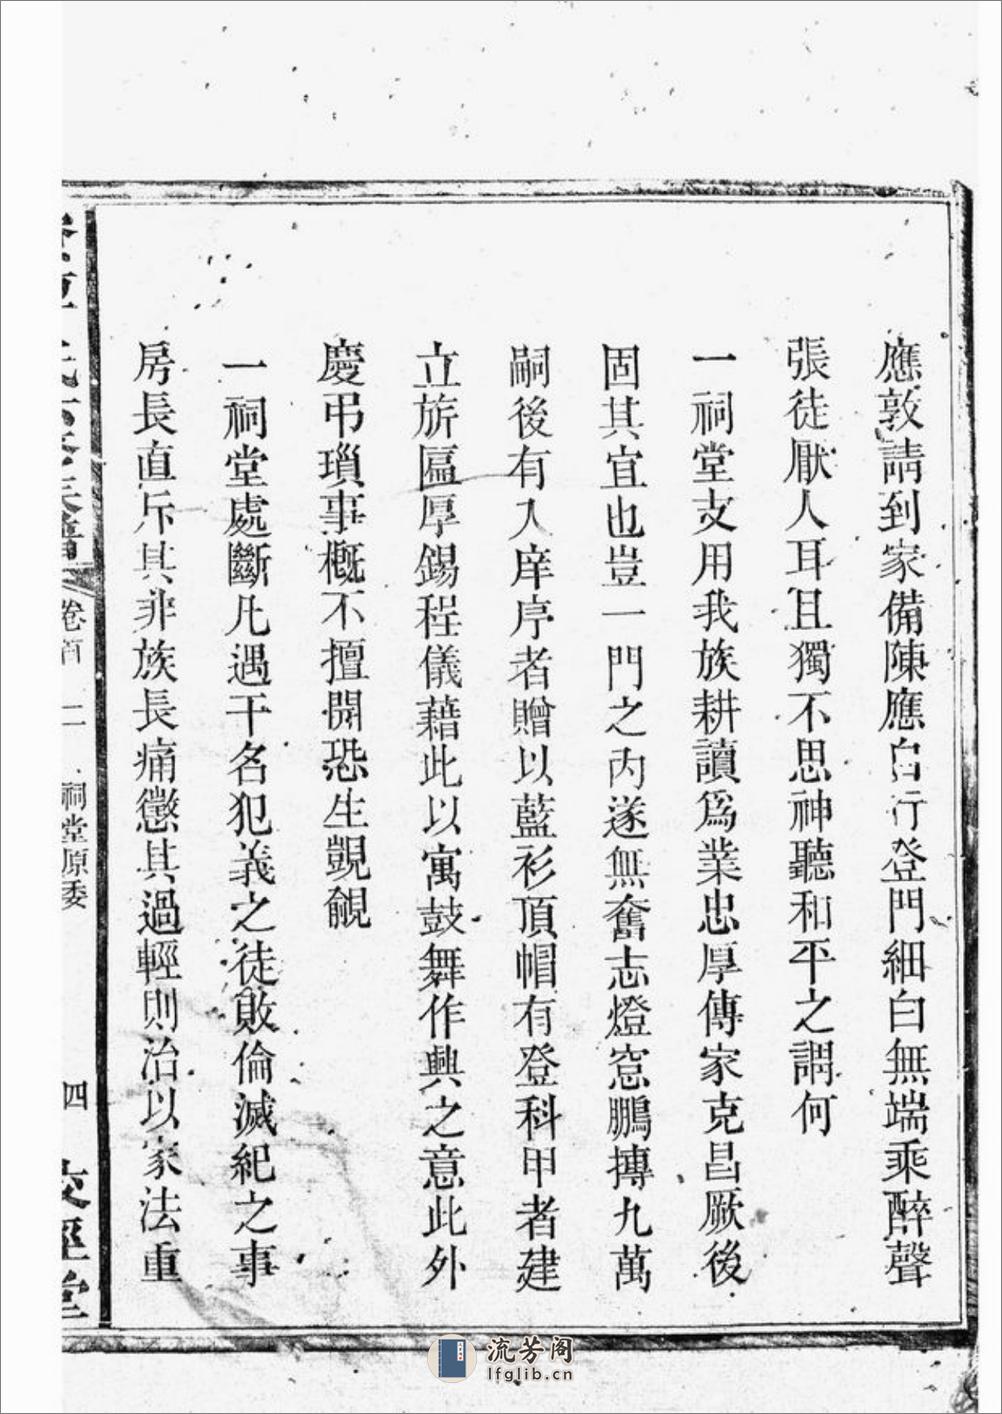 應敦請到家備陳應白行登門細白無端乘醉聲
張徒厭人耳且獨不思神聽和平之謂何
一祠堂支用我族耕讀爲業忠厚傳家克昌厥後
固其宜也豈一門之內遂無奮志燈窓鵬摶九萬
嗣後有入庠序者贈以藍衫頂帽有登科甲者建
立旂匾厚錫程儀藉此以寓鼓舞作興之意此外
慶弔瑣事概不擅開恐生覬覦
一祠堂處斷凡遇干名犯義之徒敗倫滅紀之事
房長直斥其非族長痛懲其過輕則治以家法重
卷首 二 祠堂原委 四
流芳阁
lfglib.cn